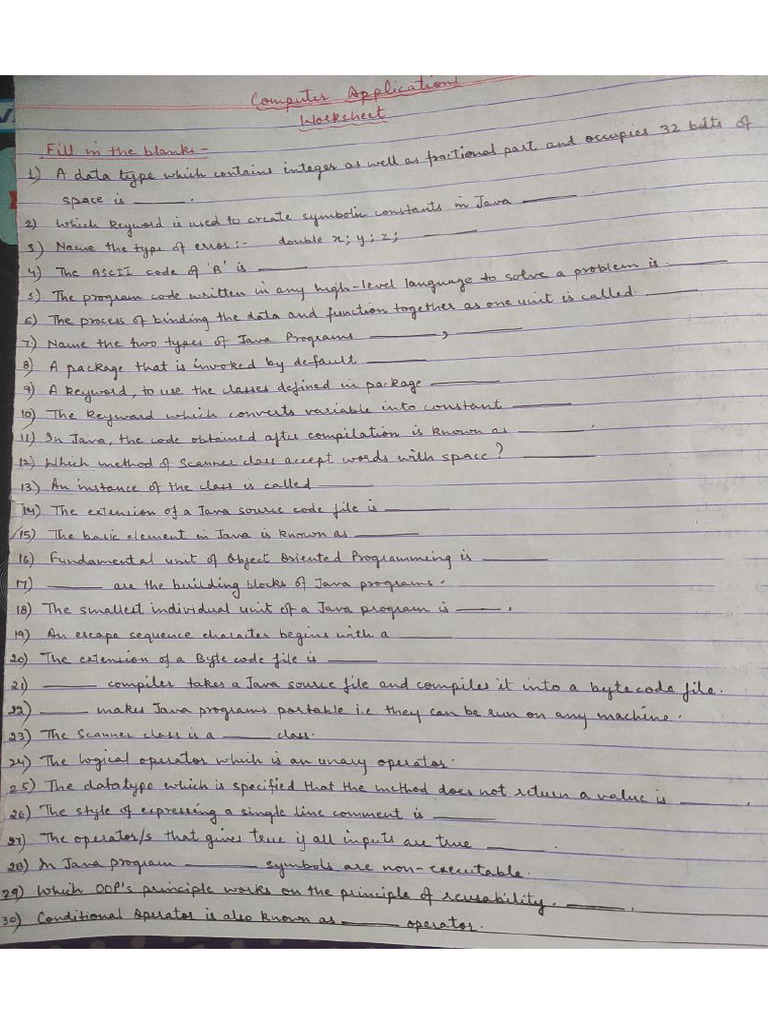 Computer Applications
Worksheet
Fill in the blanks -
1) A data type which contains integer as well as fractional part and occupies 32 bits of
space is ______.
2) Which keyword is used to create symbolic constants in Java ______
3) Name the type of error:- double x; y; z; ______
4) The ASCII code of 'B' is ______
5) The program code written in any high-level language to solve a problem is ______
6) The process of binding the data and function together as one unit is called ______
7) Name the two types of Java Programs ______, ______
8) A package that is invoked by default ______
9) A keyword, to use the classes defined in package ______
10) The keyword which converts variable into constant ______
11) In Java, the code obtained after compilation is known as ______.
12) Which method of Scanner class accept words with space? ______
13) An instance of the class is called ______
14) The extension of a Java source code file is ______
15) The basic element in Java is known as ______
16) Fundamental unit of Object Oriented Programming is ______
17) ______ are the building blocks of Java programs.
18) The smallest individual unit of a Java program is ______.
19) An escape sequence character begins with a ______
20) The extension of a Byte code file is ______
21) ______ compiler takes a Java source file and compiles it into a bytecode file.
22) ______ makes Java programs portable i.e they can be run on any machine.
23) The Scanner class is a ______ class.
24) The logical operator which is an unary operator.
25) The datatype which is specified that the method does not return a value is ______.
26) The style of expressing a single line comment is ______
27) The operator/s that gives true if all inputs are true ______.
28) In Java program ______ symbols are non-executable.
29) Which OOP's principle works on the principle of reusability. ______.
30) Conditional Operator is also known as ______ operator.